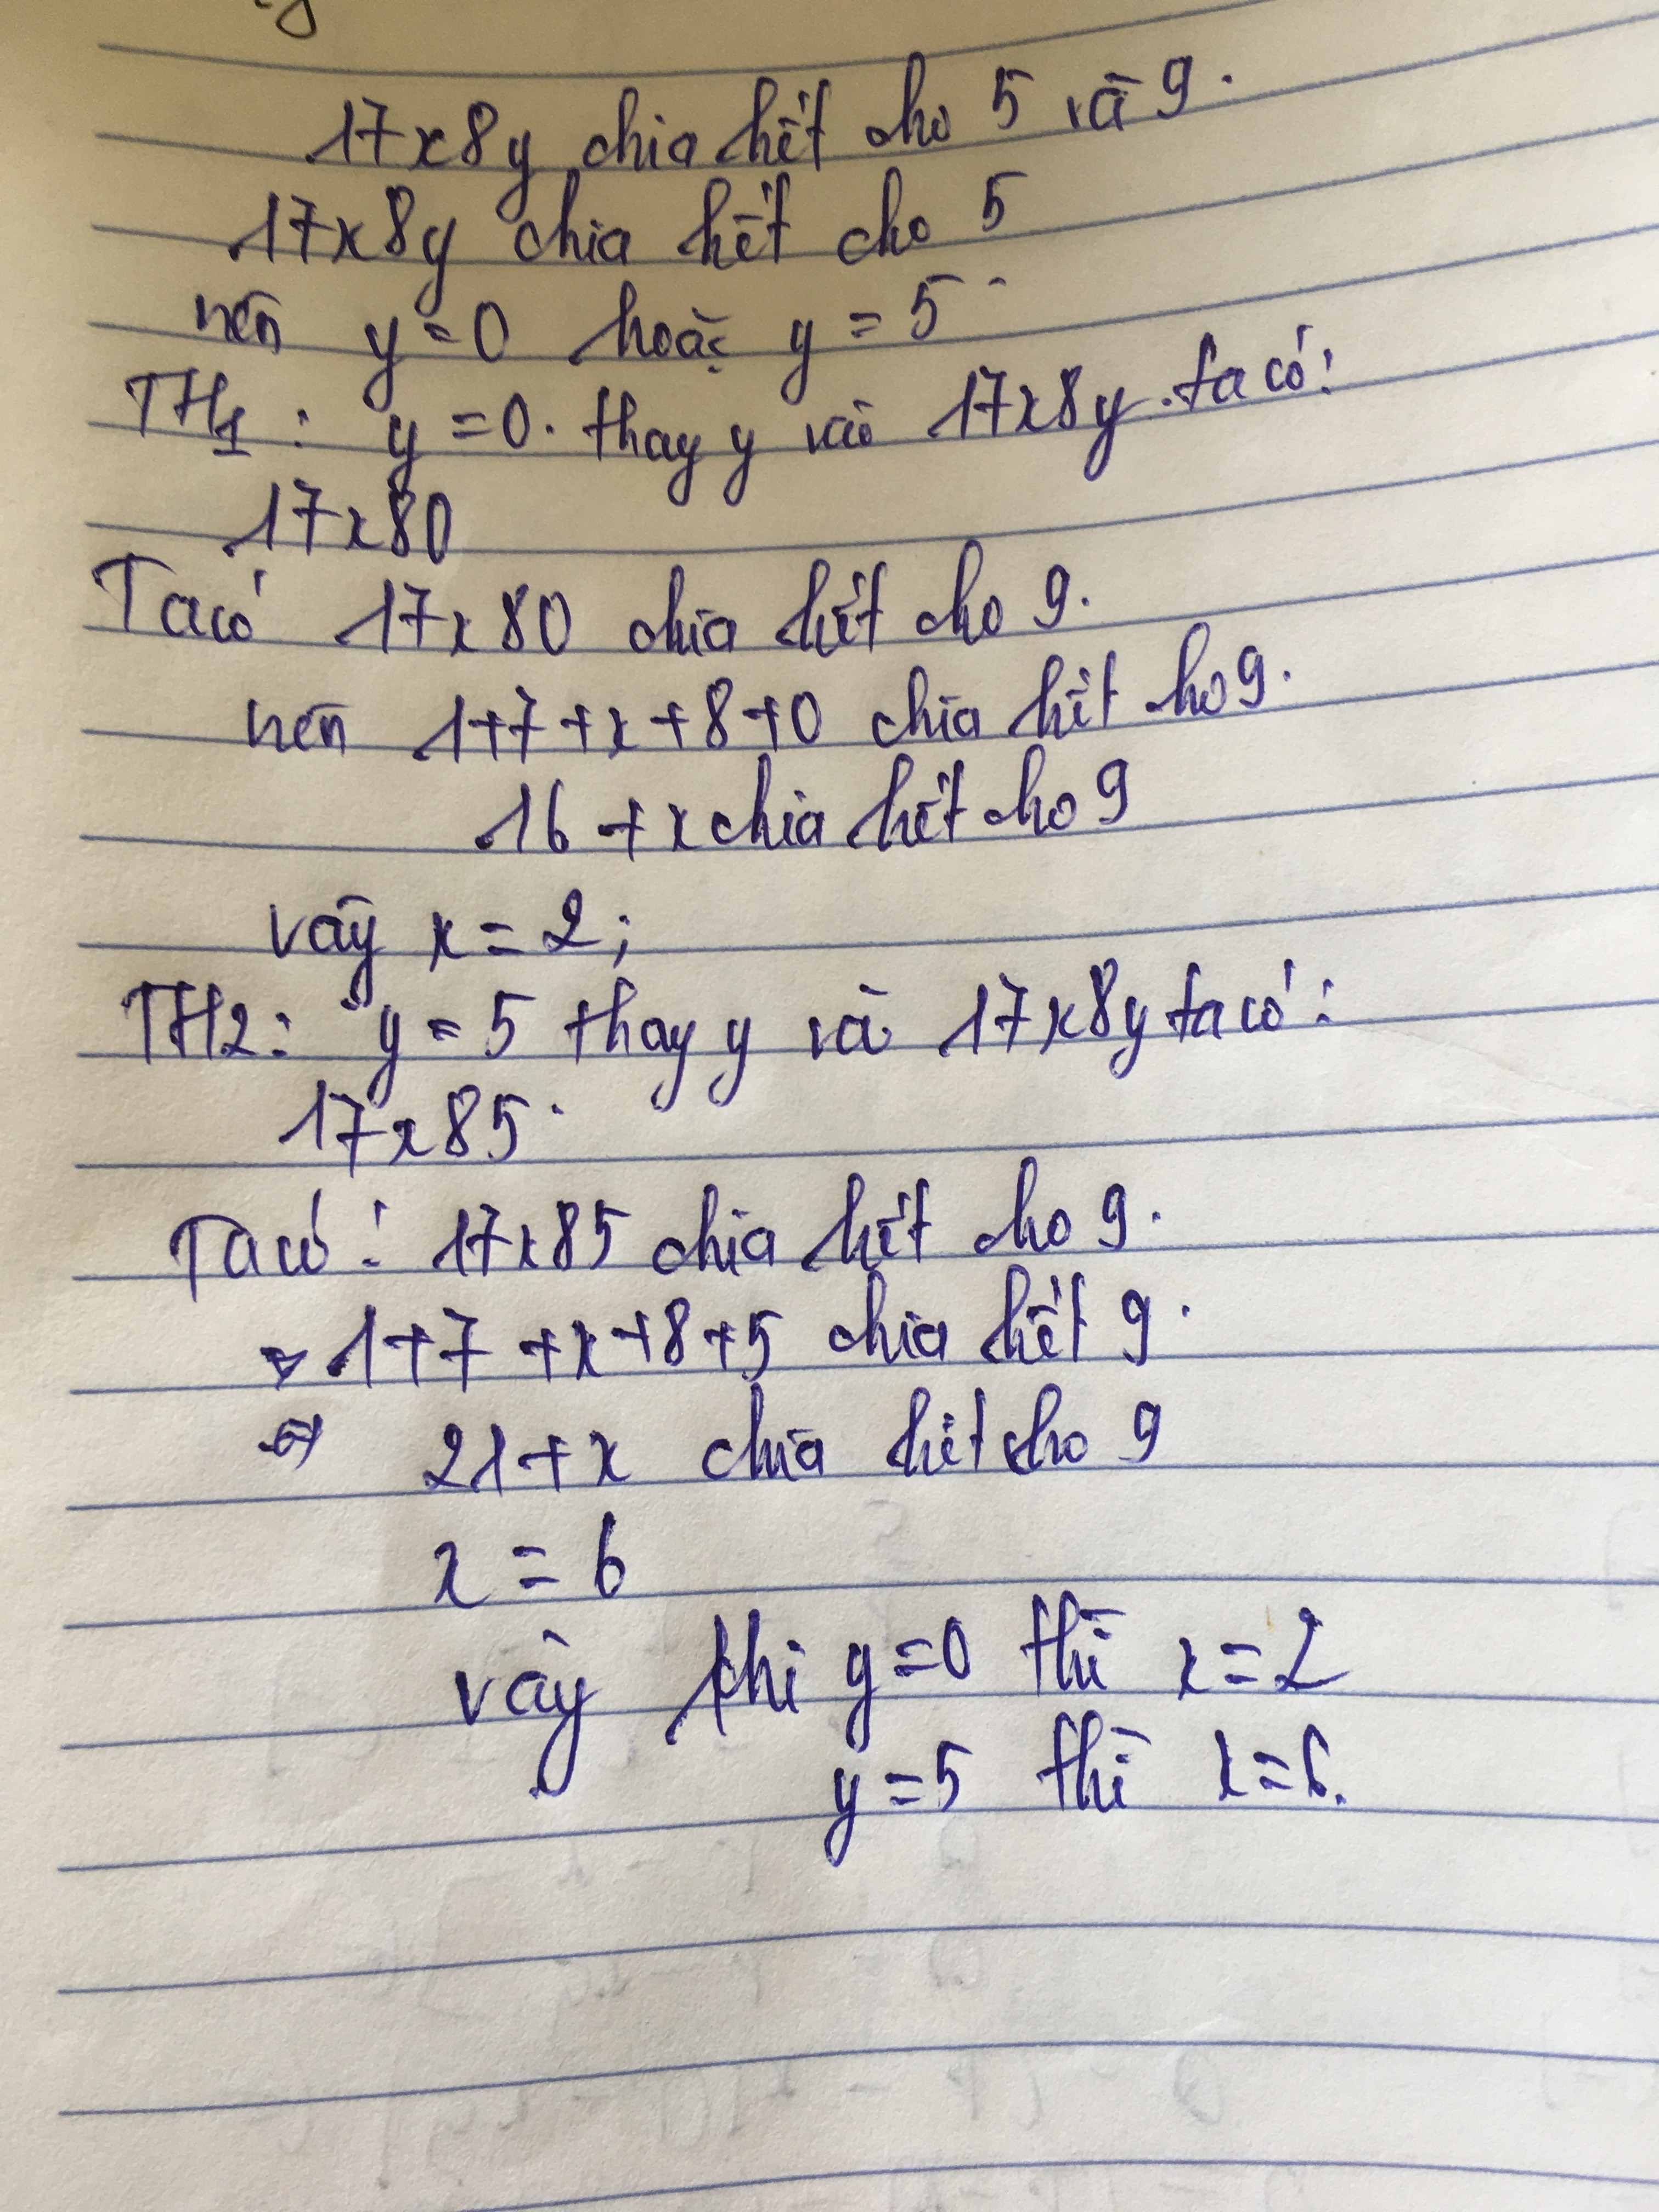 17x8y chia hết cho 5 và 9.
17x8y chia hết cho 5
nên y=0 hoặc y = 5
TH1: y=0. thay y vào 17x8y. ta có:
17x80
Ta có 17x80 chia hết cho 9.
nên 1+7+x+8+0 chia hết cho 9.
16+x chia hết cho 9
vậy x=2;
TH2: y=5 thay y và 17x8y ta có:
17x85
Ta có: 17x85 chia hết cho 9.
1+7+x+8+5 chia hết 9.
21+x chia hết cho 9
x = 6
vậy khi y=0 thì x=2
y=5 thì x=6.